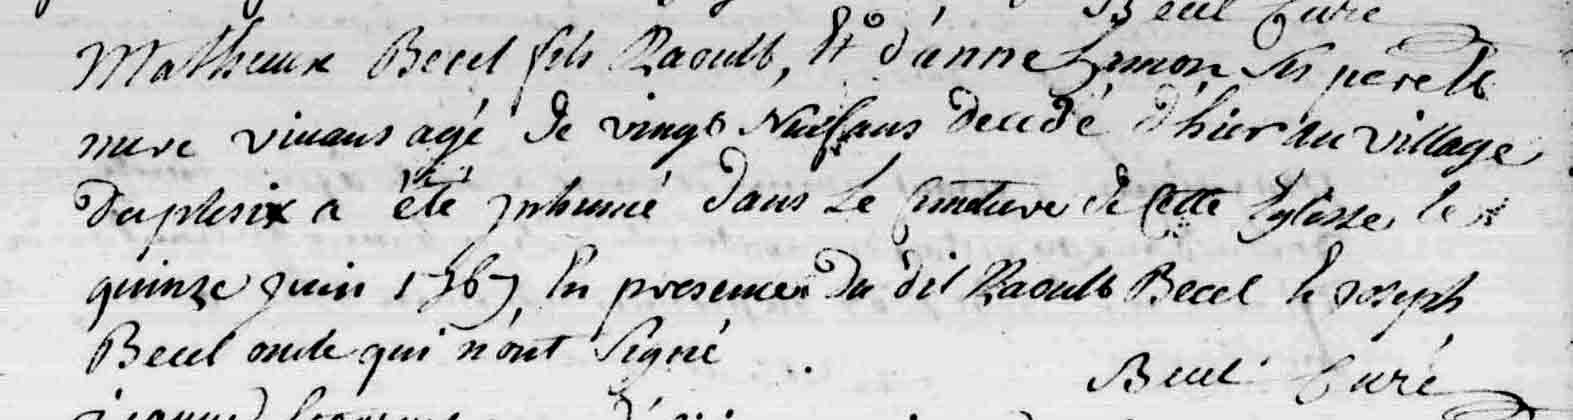 Becel Curé
Mathieux Becel fils Raoult, Et d'anne Lamon ses pere Et
mere vivans agé de vingt Neuf ans decedé d'hier au village
duplesix a été inhumé dans Le Cimetiere de Cette Eglisse le
quinze juin 1767 En presence du dit Raoult Becel Et joseph
Becel oncle qui n'ont signé
Becel Curé